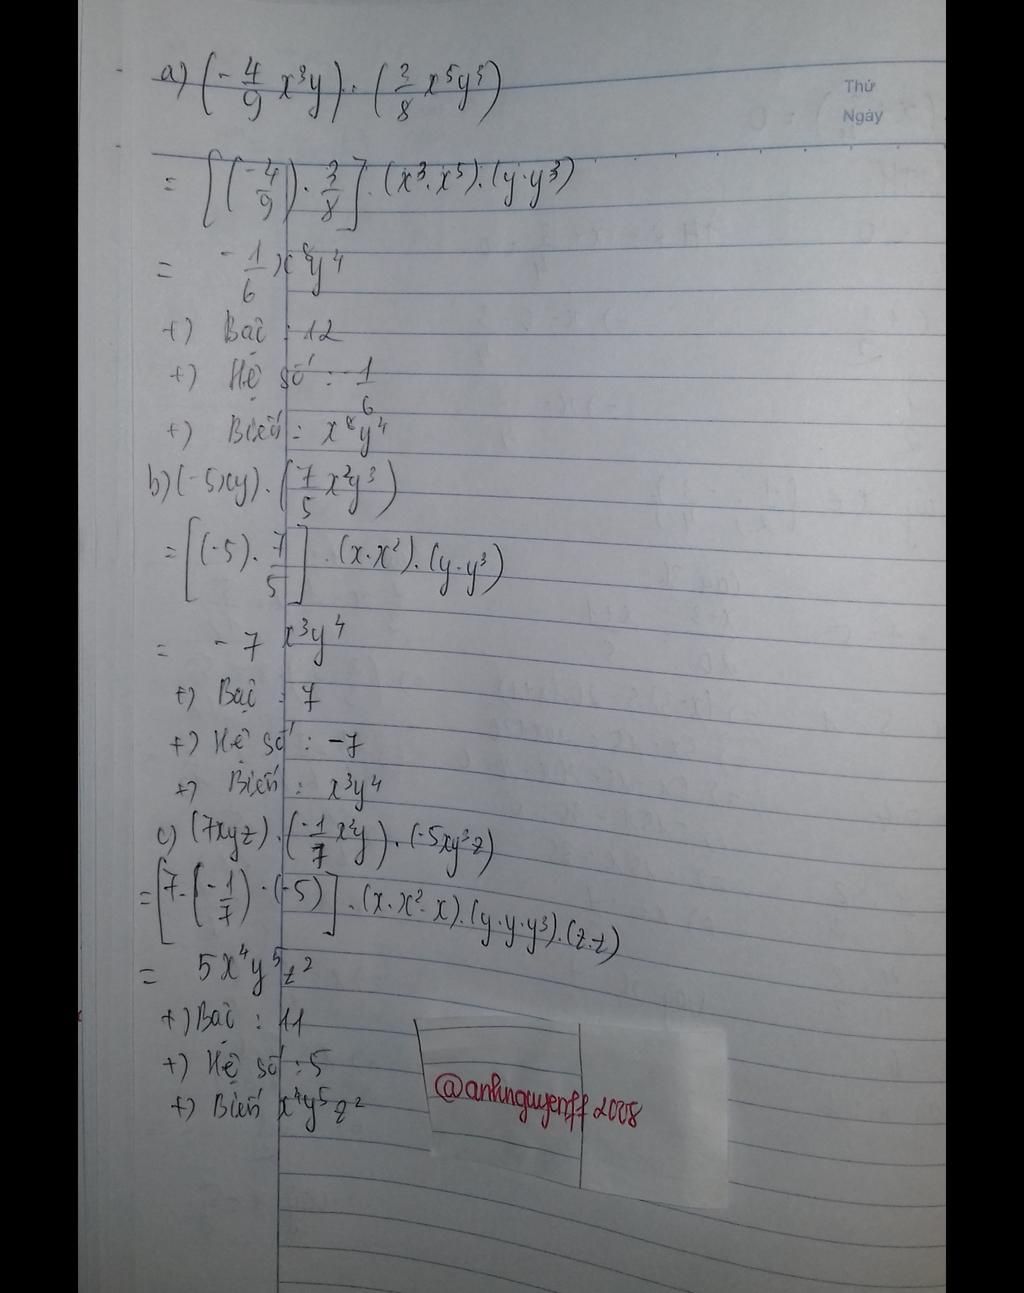 a) (-4/9 x³y) . (3/8 x⁵y³)
Thứ
Ngày
= [(-4/9) . 3/8] . (x³.x⁵).(y.y³)
= -1/6 x⁸y⁴
+) Bậc : 12
+) Hệ số : -1/6
+) Biến : x⁸y⁴
b) (-5xy) . (7/5 x²y³)
= [(-5) . 7/5] . (x.x²).(y.y³)
= -7 x³y⁴
+) Bậc : 7
+) Hệ số : -7
+) Biến : x³y⁴
c) (7xyz) . (-1/7 x²y) . (-5xy³z)
= [7.(-1/7) . (-5)] . (x.x².x).(y.y.y³).(z.z)
= 5x⁴y⁵z²
+) Bậc : 11
+) Hệ số : 5
+) Biến x⁴y⁵z²
@anhnguyenff2008